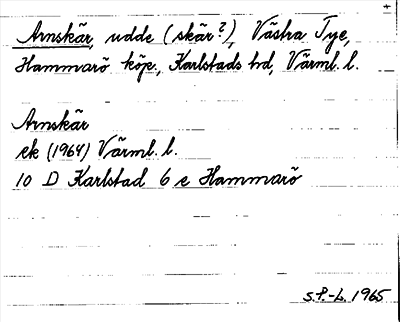 Arnskär, udde (skär?), Västra Tye,
Hammarö köp., Karlstads hd, Värml. l.
Arnskär
ek (1964) Värml. l.
10 D Karlstad 6 e Hammarö
S.P.-L. 1965